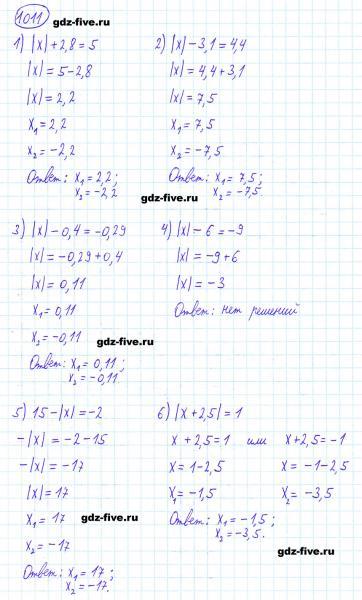 1011 gdz-five.ru
1) |x| + 2,8 = 5
|x| = 5 - 2,8
|x| = 2,2
x₁ = 2,2
x₂ = -2,2
Ответ: x₁ = 2,2;
x₂ = -2,2
2) |x| - 3,1 = 4,4
|x| = 4,4 + 3,1
|x| = 7,5
x₁ = 7,5
x₂ = -7,5
Ответ: x₁ = 7,5;
x₂ = -7,5.
gdz-five.ru
3) |x| - 0,4 = -0,29
|x| = -0,29 + 0,4
|x| = 0,11
x₁ = 0,11
x₂ = -0,11
gdz-five.ru
Ответ: x₁ = 0,11;
x₂ = -0,11
4) |x| - 6 = -9
|x| = -9 + 6
|x| = -3
Ответ: нет решений
gdz-five.ru
5) 15 - |x| = -2
-|x| = -2 - 15
-|x| = -17
|x| = 17
x₁ = 17
x₂ = -17
Ответ: x₁ = 17;
x₂ = -17.
gdz-five.ru
6) |x + 2,5| = 1
x + 2,5 = 1 или x + 2,5 = -1
x = 1 - 2,5 x = -1 - 2,5
x₁ = -1,5 x₂ = -3,5
Ответ: x₁ = -1,5;
x₂ = -3,5.
gdz-five.ru